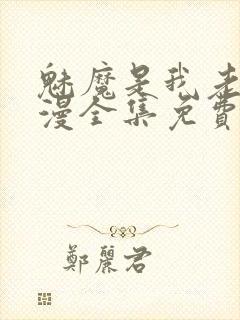 魅魔是我老
漫全集免費
鄭麗君